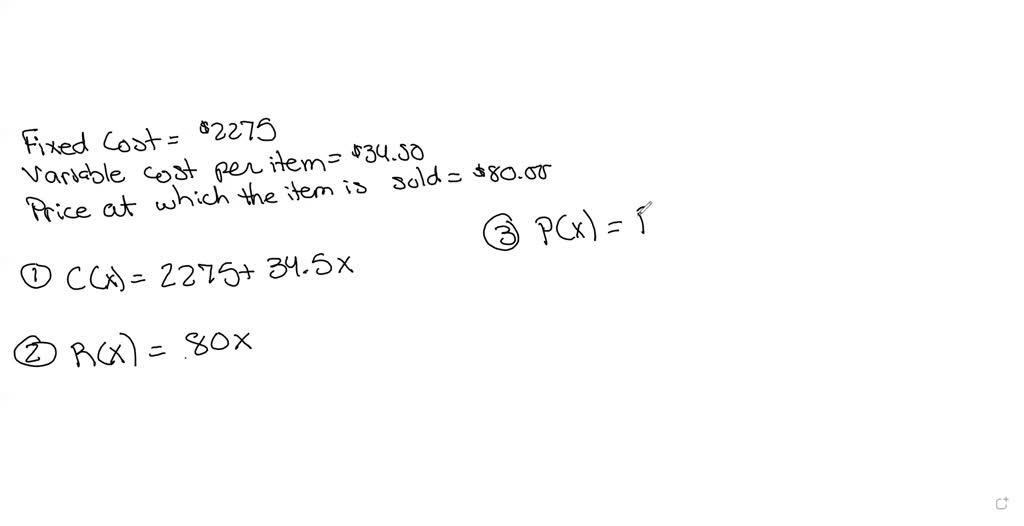 Fixed Cost = $2275
Variable cost per item = $34.50
Price at which the item is sold = $80.00
① C(x) = 2275 + 34.5x
② R(x) = 80x
③ P(x) =